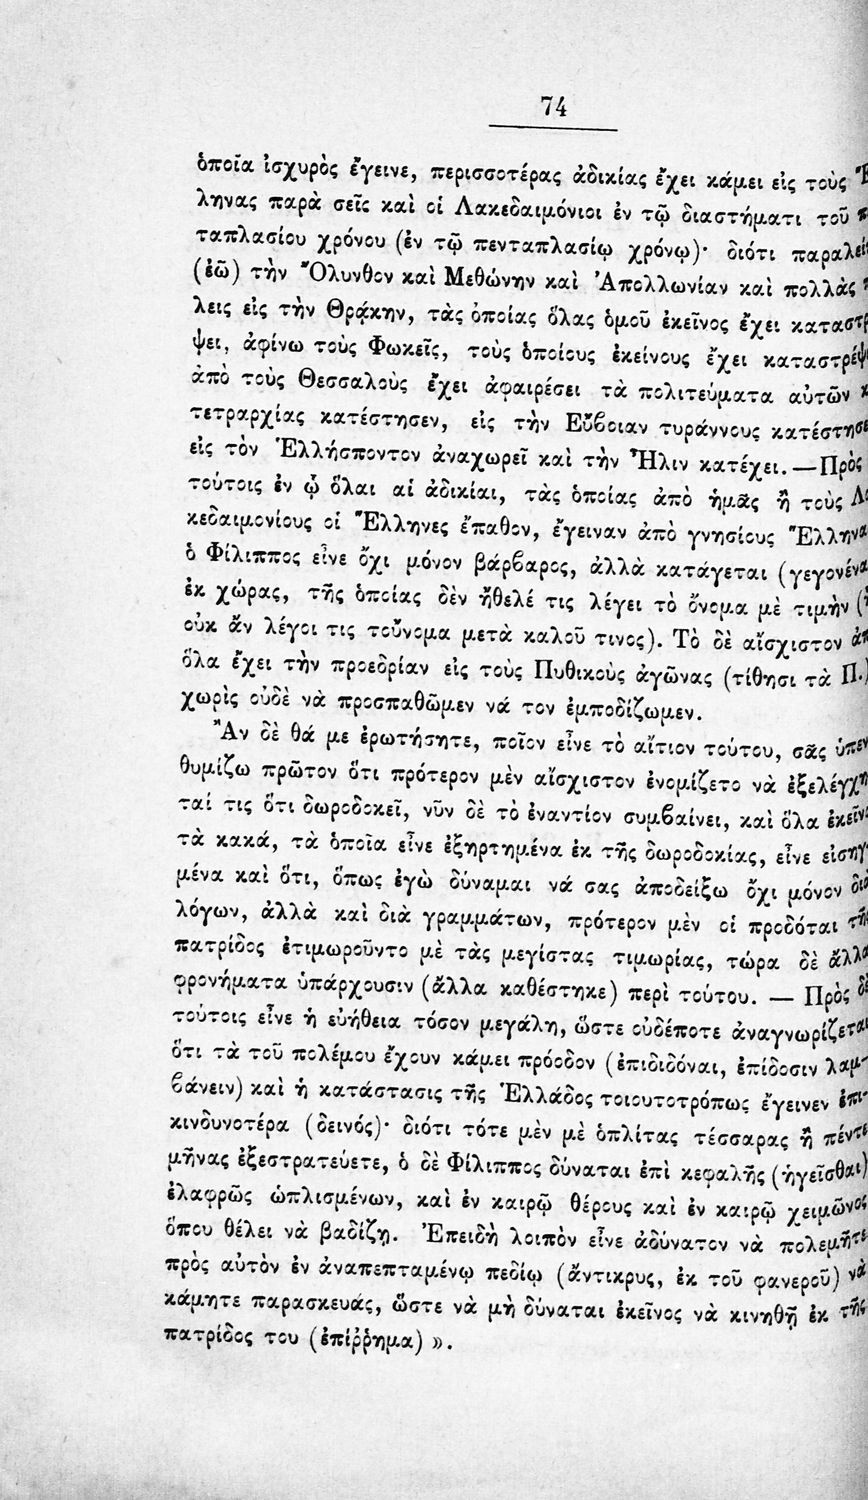 74
ὁποῖα ἰσχυρὸς ἔγεινε, περισσοτέρας ἀδικίας ἔχει κάμει εἰς τοὺς
ληνας παρὰ σεῖς καὶ οἱ Λακεδαιμόνιοι ἐν τῷ διαστήματι τοῦ
ταπλασίου χρόνου (ἐν τῷ πενταπλασίῳ χρόνῳ)· διότι
(ἐῶ) τὴν Ὄλυνθον καὶ Μεθώνην καὶ Ἀπολλωνίαν καὶ πολλὰς
λεις εἰς τὴν Θρᾴκην, τὰς ὁποίας ὅλας ὁμοῦ ἐκεῖνος ἔχει
ψει, ἀφίνω τοὺς Φωκεῖς, τοὺς ὁποίους ἐκείνους ἔχει
ἀπὸ τοὺς Θεσσαλοὺς ἔχει ἀφαιρέσει τὰ πολιτεύματα αὐτῶν
τετραρχίας κατέστησεν, εἰς τὴν Εὔβοιαν τυράννους
εἰς τὸν Ἑλλήσποντον ἀναχωρεῖ καὶ τὴν Ἦλιν κατέχει.—Πρὸς
τούτοις ἐν ᾧ ὅλαι αἱ ἀδικίαι, τὰς ὁποίας ἀπὸ ἡμᾶς ἢ τοὺς
κεδαιμονίους οἱ Ἕλληνες ἔπαθον, ἔγειναν ἀπὸ γνησίους
ὁ Φίλιππος εἶνε ὄχι μόνον βάρβαρος, ἀλλὰ κατάγεται
ἐκ χώρας, τῆς ὁποίας δὲν ἤθελέ τις λέγει τὸ ὄνομα μὲ τιμὴν
οὐκ ἂν λέγοι τις τοὔνομα μετὰ καλοῦ τινος). Τὸ δὲ αἴσχιστον
ὅλα ἔχει τὴν προεδρίαν εἰς τοὺς Πυθικοὺς ἀγῶνας (τίθησι τὰ Π.)
χωρὶς οὐδὲ νὰ προσπαθῶμεν νά τον ἐμποδίζωμεν.
Ἂν δὲ θά με ἐρωτήσητε, ποῖον εἶνε τὸ αἴτιον τούτου, σᾶς ὑπεν
θυμίζω πρῶτον ὅτι πρότερον μὲν αἴσχιστον ἐνομίζετο νὰ ἐξελέγχη
ταί τις ὅτι δωροδοκεῖ, νῦν δὲ τὸ ἐναντίον συμβαίνει, καὶ ὅλα
τὰ κακά, τὰ ὁποῖα εἶνε ἐξηρτημένα ἐκ τῆς δωροδοκίας, εἶνε εἰσηγ-
μένα καὶ ὅτι, ὅπως ἐγὼ δύναμαι νά σας ἀποδείξω ὄχι μόνον διὰ
λόγων, ἀλλὰ καὶ διὰ γραμμάτων, πρότερον μὲν οἱ προδόται τῆς
πατρίδος ἐτιμωροῦντο μὲ τὰς μεγίστας τιμωρίας, τώρα δὲ ἄλλα
φρονήματα ὑπάρχουσιν (ἄλλα καθέστηκε) περὶ τούτου. — Πρὸς δὲ
τούτοις εἶνε ἡ εὐήθεια τόσον μεγάλη, ὥστε οὐδέποτε ἀναγνωρίζεται
ὅτι τὰ τοῦ πολέμου ἔχουν κάμει πρόοδον (ἐπιδιδόναι, ἐπίδοσιν λαμ-
βάνειν) καὶ ἡ κατάστασις τῆς Ἑλλάδος τοιουτοτρόπως ἔγεινεν ἐπι-
κινδυνοτέρα (δεινός)· διότι τότε μὲν μὲ ὁπλίτας τέσσαρας ἢ πέντε
μῆνας ἐξεστρατεύετε, ὁ δὲ Φίλιππος δύναται ἐπὶ κεφαλῆς (ἡγεῖσθαι)
ἐλαφρῶς ὡπλισμένων, καὶ ἐν καιρῷ θέρους καὶ ἐν καιρῷ χειμῶνος
ὅπου θέλει νὰ βαδίζῃ. Ἐπειδὴ λοιπὸν εἶνε ἀδύνατον νὰ πολεμῆτε
πρὸς αὐτὸν ἐν ἀναπεπταμένῳ πεδίῳ (ἄντικρυς, ἐκ τοῦ φανεροῦ) νὰ
κάμητε παρασκευάς, ὥστε νὰ μὴ δύναται ἐκεῖνος νὰ κινηθῇ ἐκ τῆς
πατρίδος του (ἐπίῤῥημα) ».